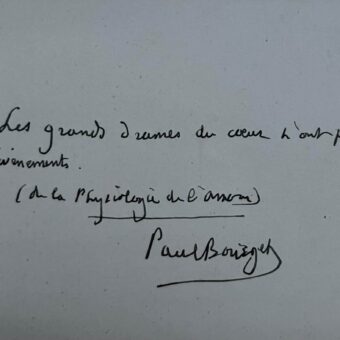 Les grands drames du cœur n'ont p
événements.
(de la Physiologie de l'amour)
Paul Bourget